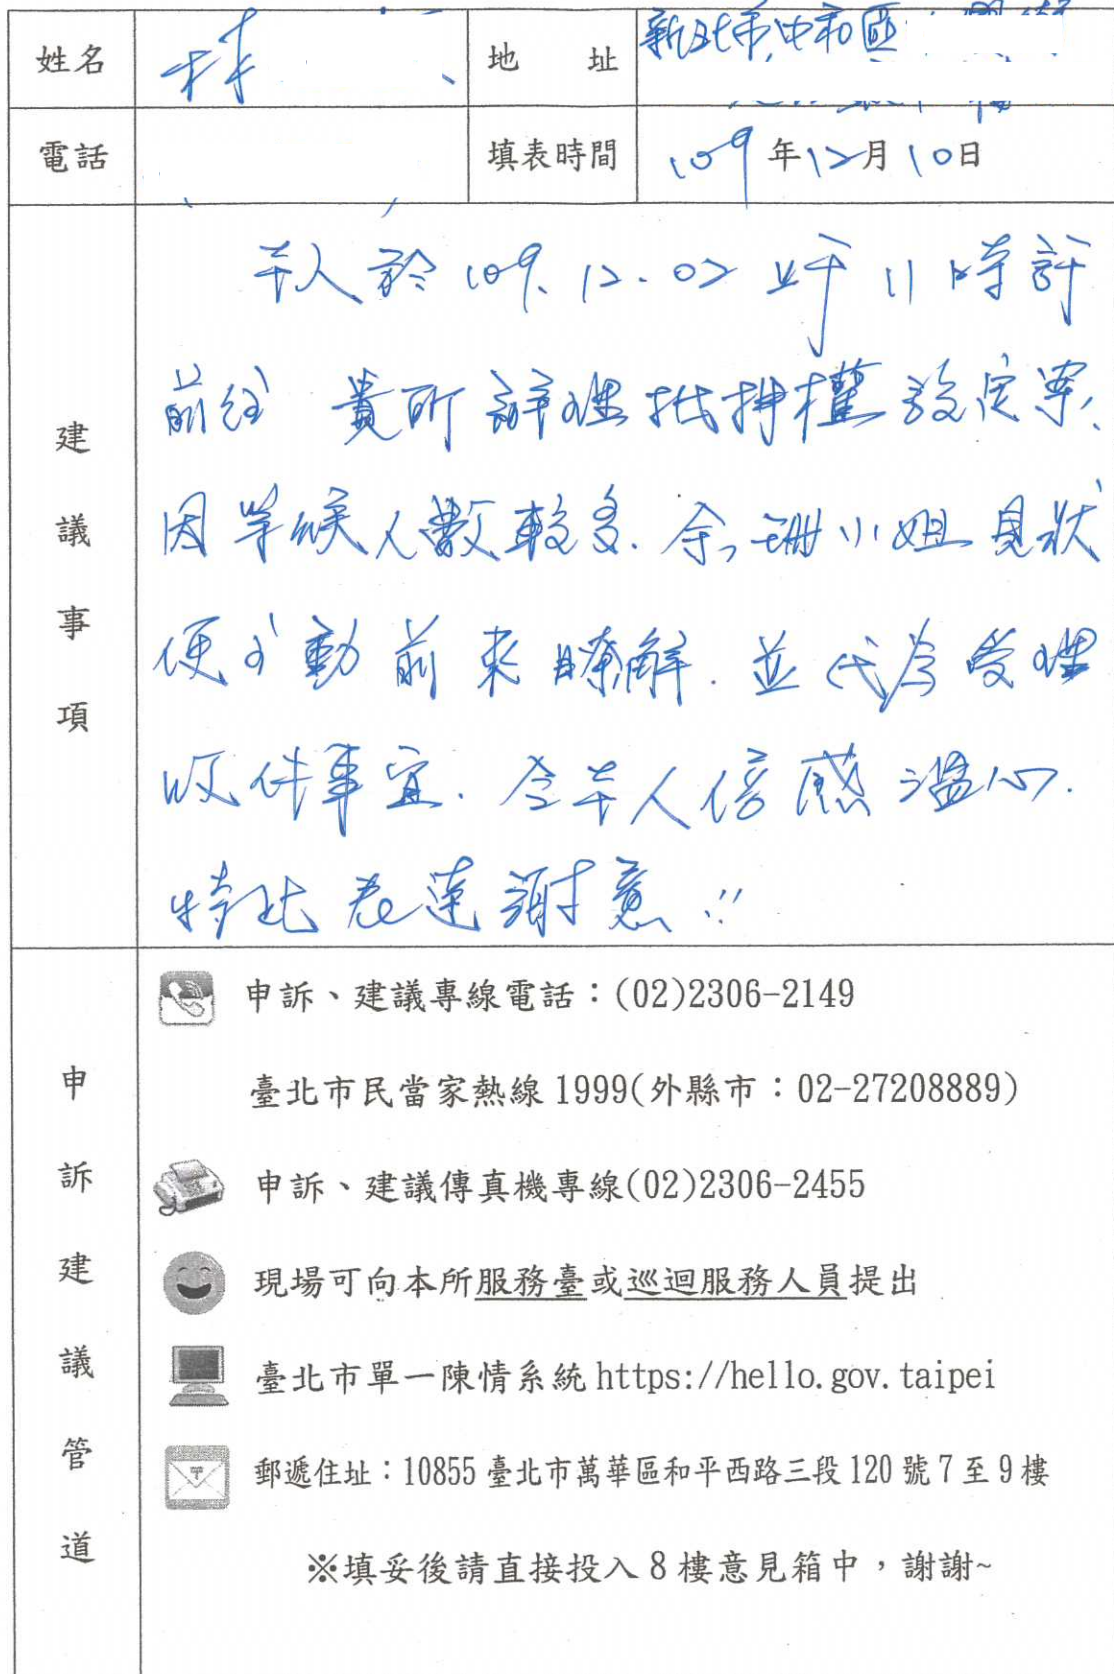 姓名 林 地址 新北市中和區
電話 填表時間 109年12月10日
建議事項
本人於109.12.02上午11時許
前往 貴所辦理抵押權設定案,
因等候人數較多.余珊小姐見狀
便主動前來瞭解.並代為受理
收件事宜.令本人倍感溫心.
特此表達謝意!!
申訴建議管道
申訴、建議專線電話：(02)2306-2149
臺北市民當家熱線1999(外縣市：02-27208889)
申訴、建議傳真機專線(02)2306-2455
現場可向本所服務臺或巡迴服務人員提出
臺北市單一陳情系統https://hello.gov.taipei
郵遞住址：10855臺北市萬華區和平西路三段120號7至9樓
※填妥後請直接投入8樓意見箱中，謝謝~